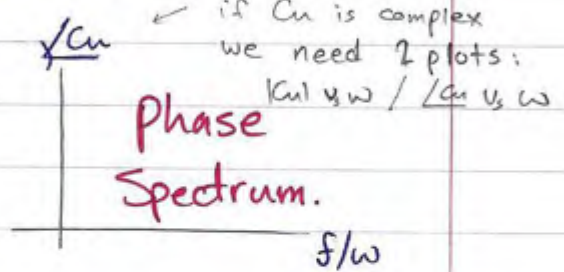 if Cn is complex
∠Cn we need 2 plots:
|Cn| vs ω / ∠Cn vs ω
Phase
Spectrum.
f/ω